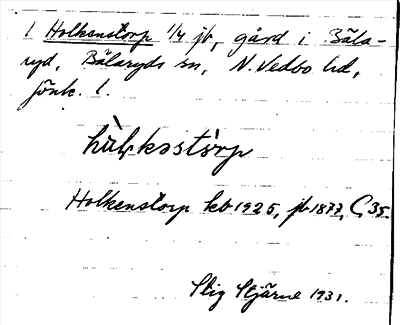 1 Holkenstorp 1/4 jb, gård i Bäla-
ryd, Bälaryds sn, N. Vedbo hd,
Jönk. l.
Holkenstorp kb 1925, jb 1877, C 35
Stig Stjärne 1931.